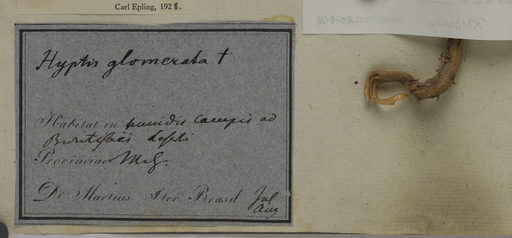 Carl Epling, 1928.
Hyptis glomerata †
Habitat in humidis campis ad
Provinciae M.G.
Dr Martius Iter Brasil Jul
Aug